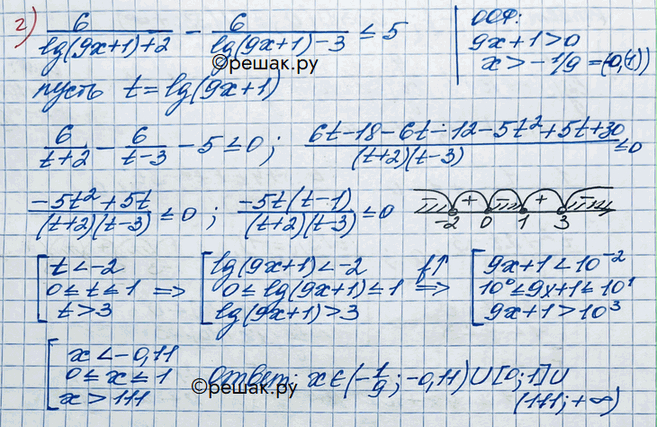 г) 6/(lg(9x+1)+2) - 6/(lg(9x+1)-3) ≤ 5
ООФ:
9x+1>0
x>-1/9 = (-0,(1))
©решак.ру
пусть t=lg(9x+1)
6/(t+2) - 6/(t-3) - 5 ≤ 0; (6t-18-6t-12-5t²+5t+30)/((t+2)(t-3)) ≤ 0
(-5t²+5t)/((t+2)(t-3)) ≤ 0; (-5t(t-1))/((t+2)(t-3)) ≤ 0
- + - + -
-2 0 1 3
[ t<-2 [ lg(9x+1)<-2 f↑ [ 9x+1<10⁻²
0≤t≤1 => 0≤lg(9x+1)≤1 => 10⁰≤9x+1≤10¹
t>3 lg(9x+1)>3 9x+1>10³
[ x<-0,11
0≤x≤1 Ответ: x∈(-1/9; -0,11)∪[0;1]∪
x>111 (111;+∞)
©решак.ру